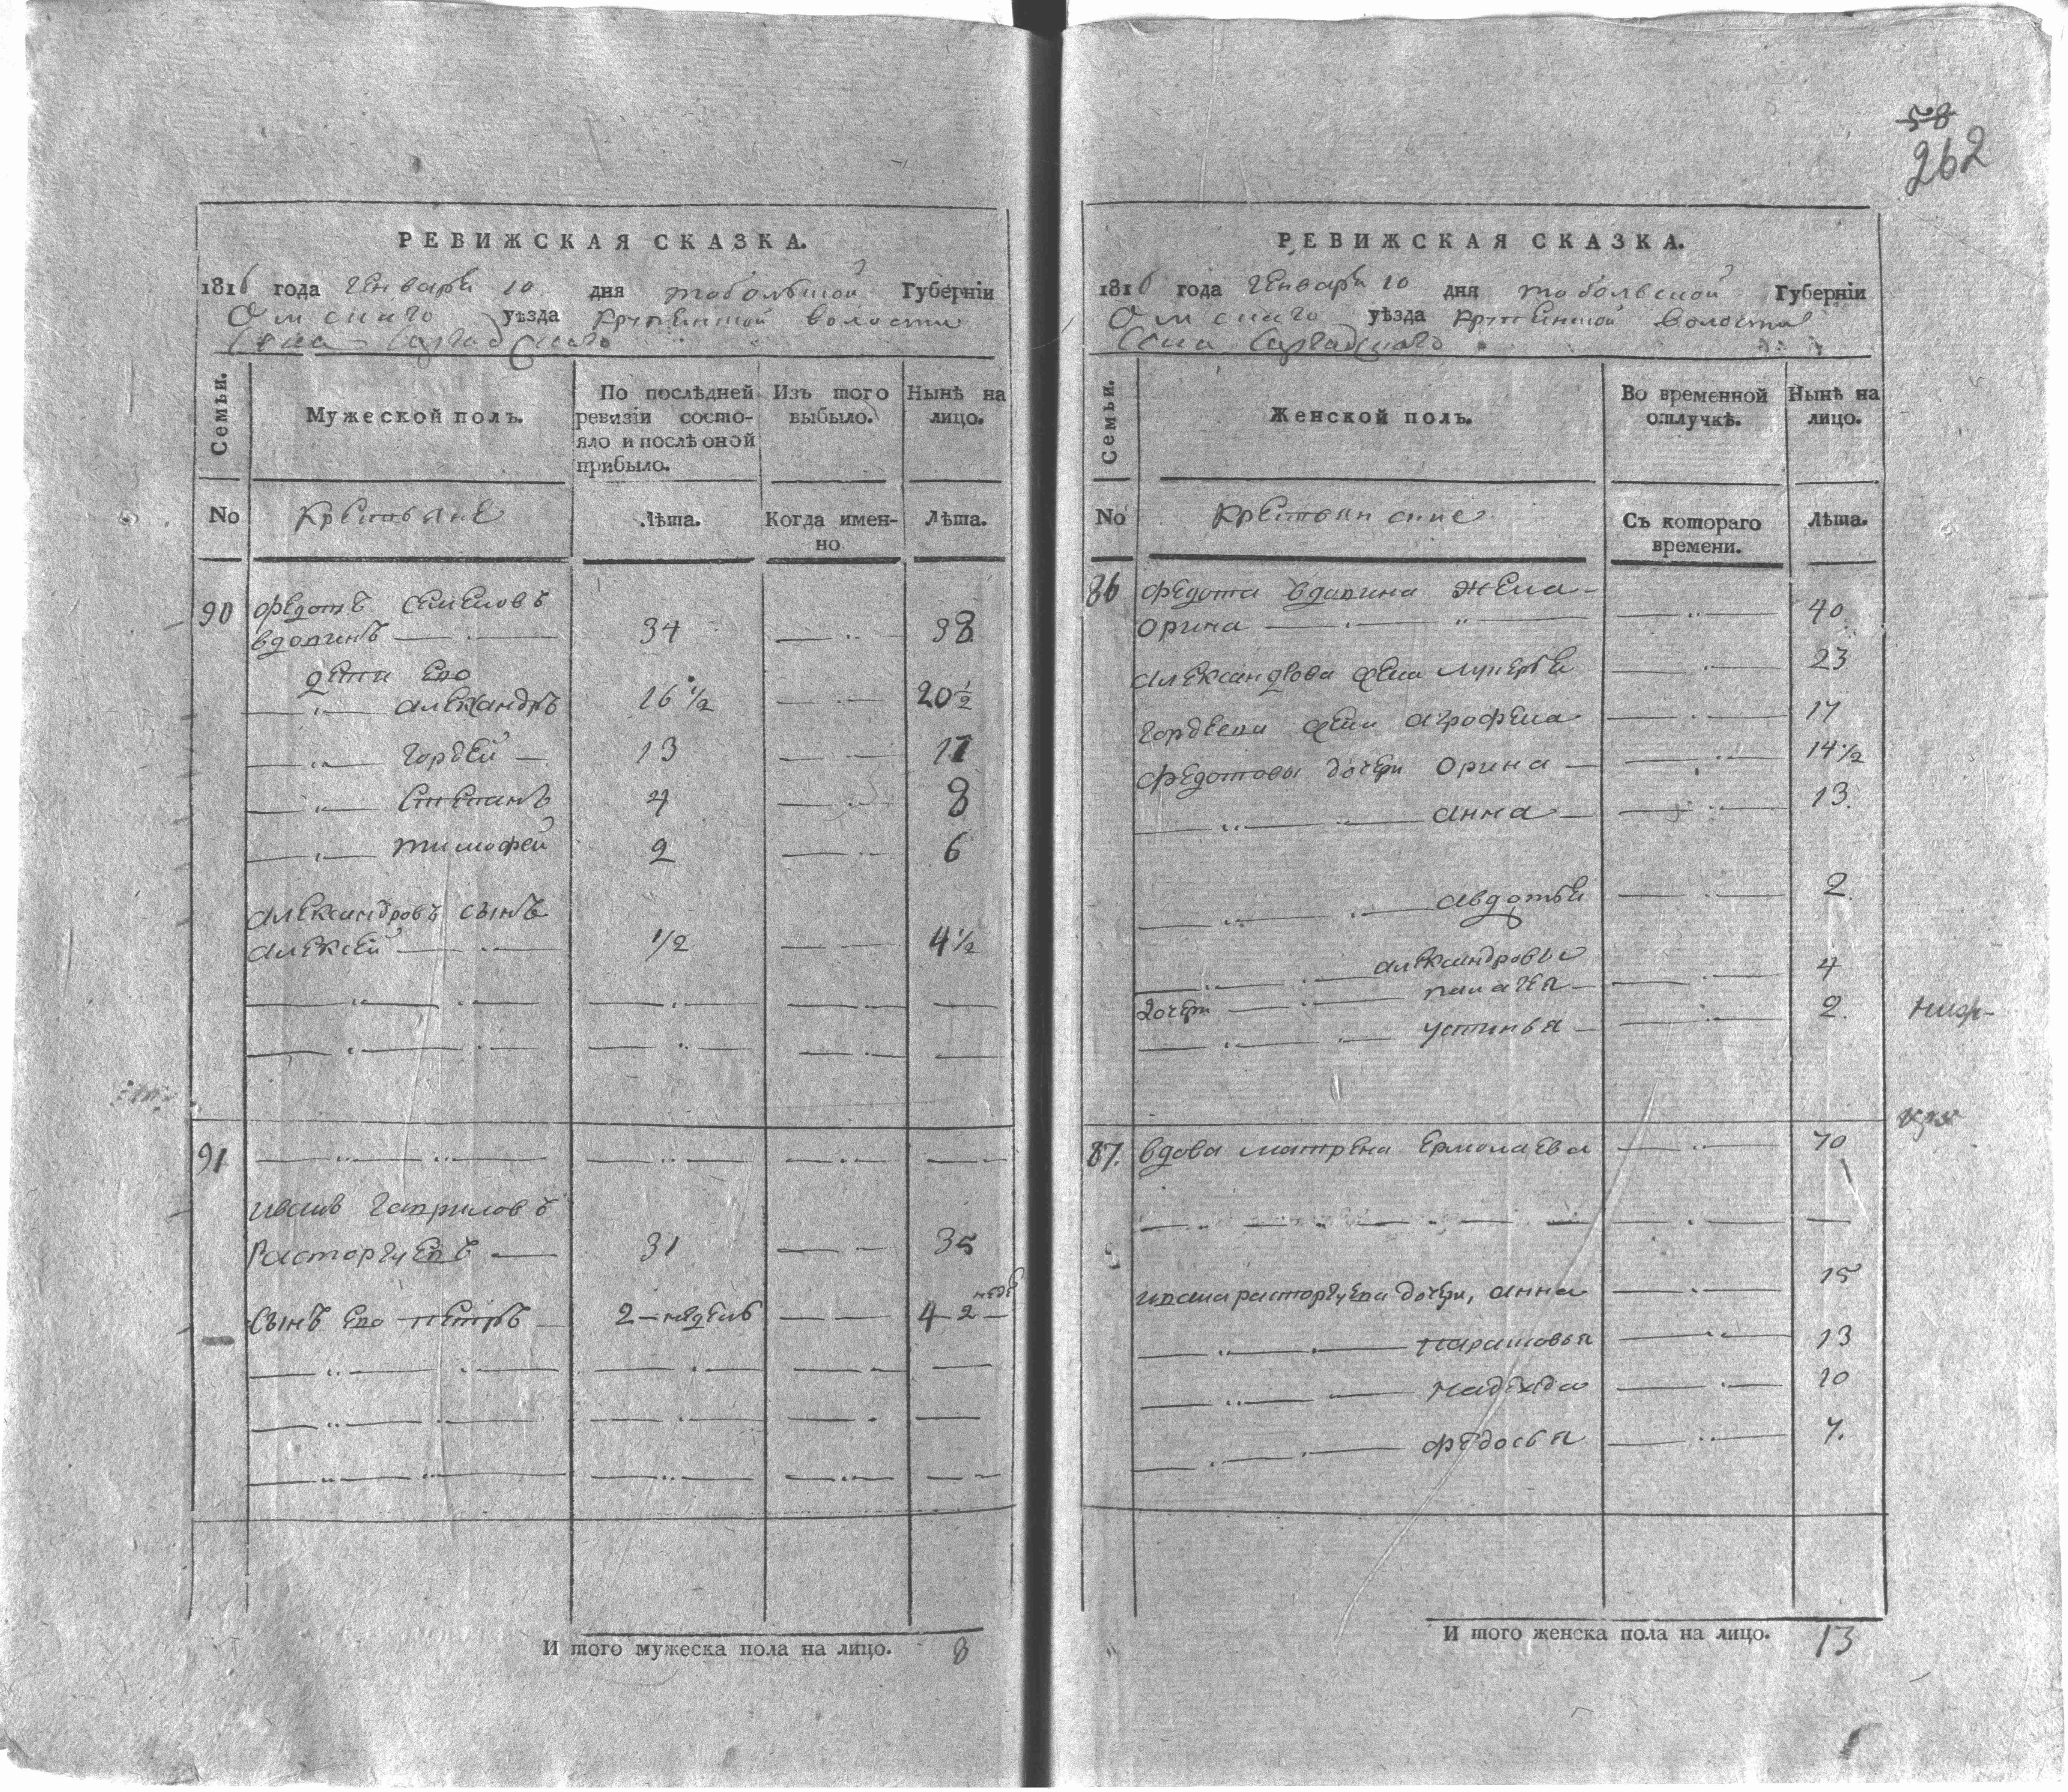 58
262
РЕВИЖСКАЯ СКАЗКА.
1816 года Генваря 10 дня тобольской Губерніи
Омскаго уѣзда крутинской волости
Села
Семьи.
Мужеской полъ.
По послѣдней ревизіи состояло и послѣ оной прибыло.
Изъ того выбыло.
Нынѣ на лицо.
No
Крестьяне
Лѣта.
Когда именно
Лѣта.
90 федотъ семеновъ
вдовинъ 34 38
дети Ево
александръ 16 1/2 20 1/2
гордей 13 17
степанъ 4 8
тимофей 2 6
александровъ сынъ
алексей 1/2 4 1/2
91
иванъ гавриловъ
Расторгуевъ 31 35
сынъ Ево петръ 2 неделъ 4 2 неде
И того мужеска пола на лицо. 8
РЕВИЖСКАЯ СКАЗКА.
1816 года Генваря 10 дня тобольской Губерніи
Омскаго уѣзда крутинской волости
Села
Семьи.
Женской полъ.
Во временной отлучкѣ.
Нынѣ на лицо.
No
крестьянские
Съ котораго времени.
Лѣта.
86 федота вдовина жена
орина 40
александрова жена лукерья 23
гордеева жена агрофена 17
федотовы дочери орина 14 1/2
анна 13.
авдотья 2.
александровы
дочери палагея 4
устинья 2.
87. вдова матрена ермолаева 70
ивана расторгуева дочери, анна 15
парасковья 13
надежда 10
федосья 7.
И того женска пола на лицо. 13